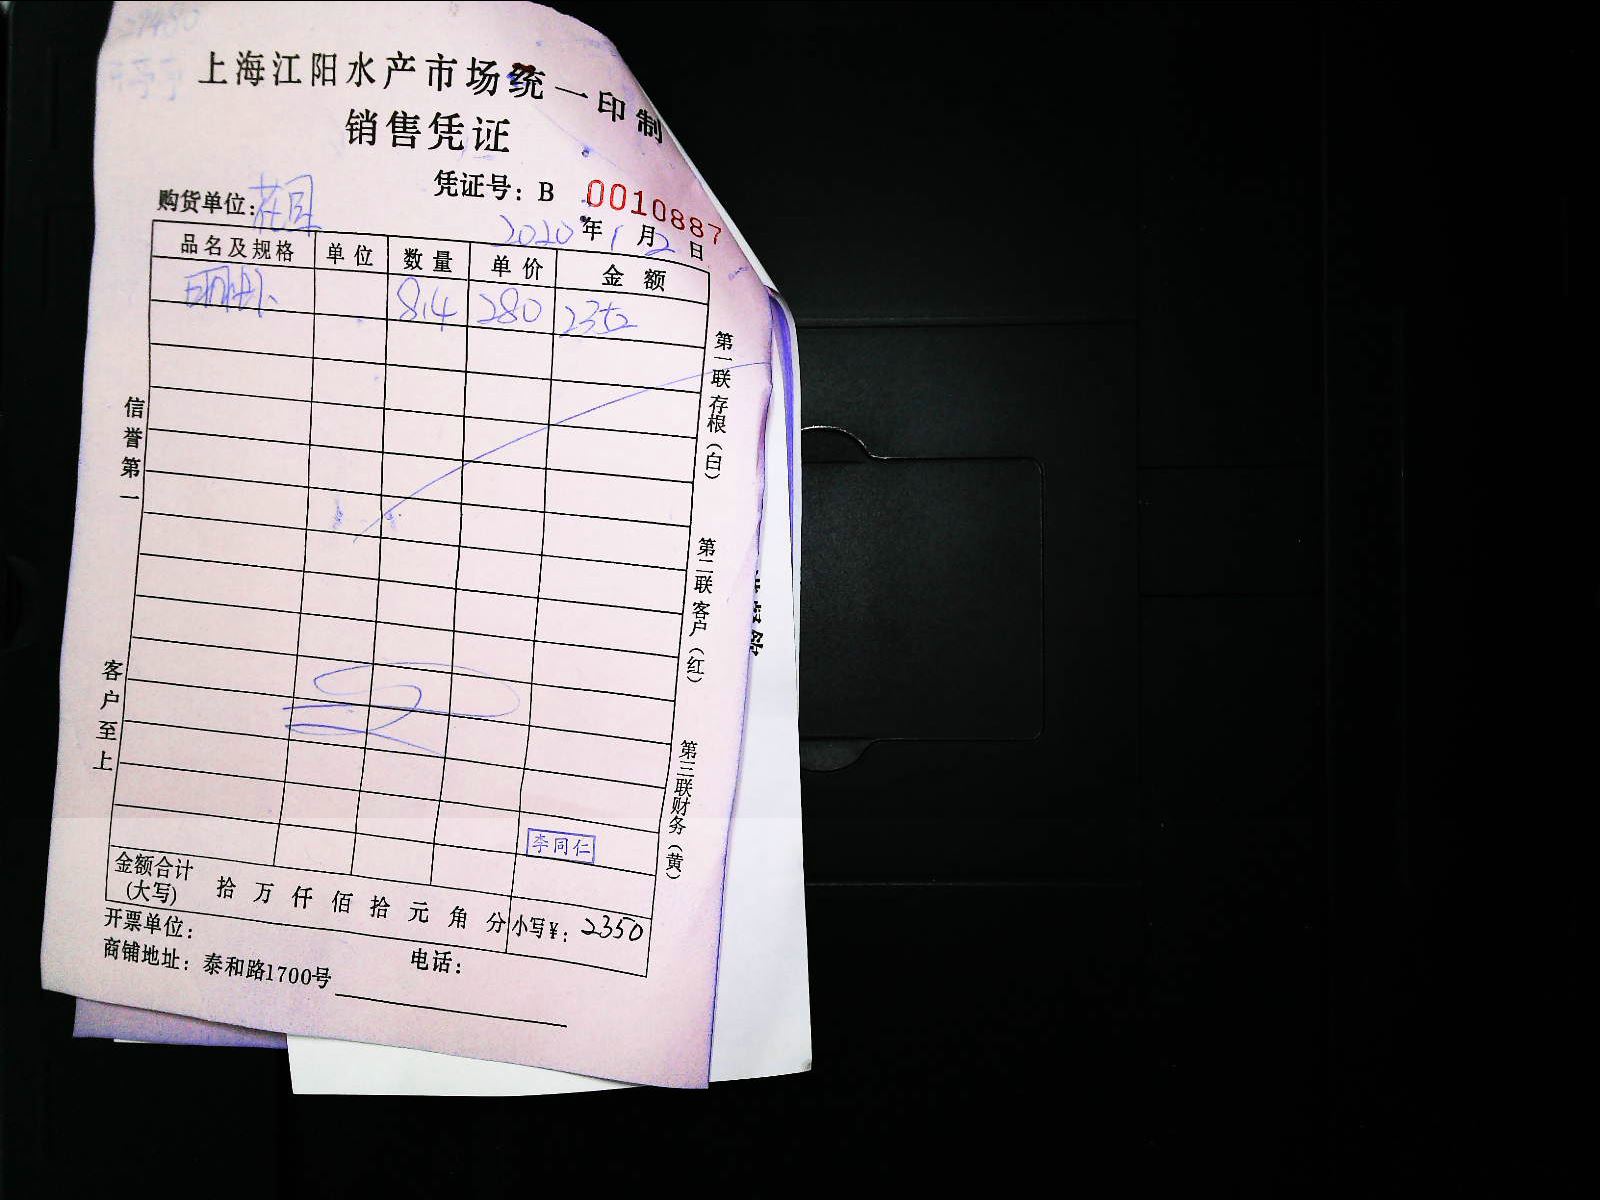 上海江阳水产市场统一印制
销售凭证
凭证号：B 0010887
购货单位：花园
2020年1月2日
品名及规格 单位 数量 单价 金额
8.4 280 2352
信誉第一
客户至上
第一联存根（白）
第二联客户（红）
第三联财务（黄）
李同仁
金额合计(大写) 拾 万 仟 佰 拾 元 角 分 小写¥：2350
开票单位： 电话：
商铺地址：泰和路1700号